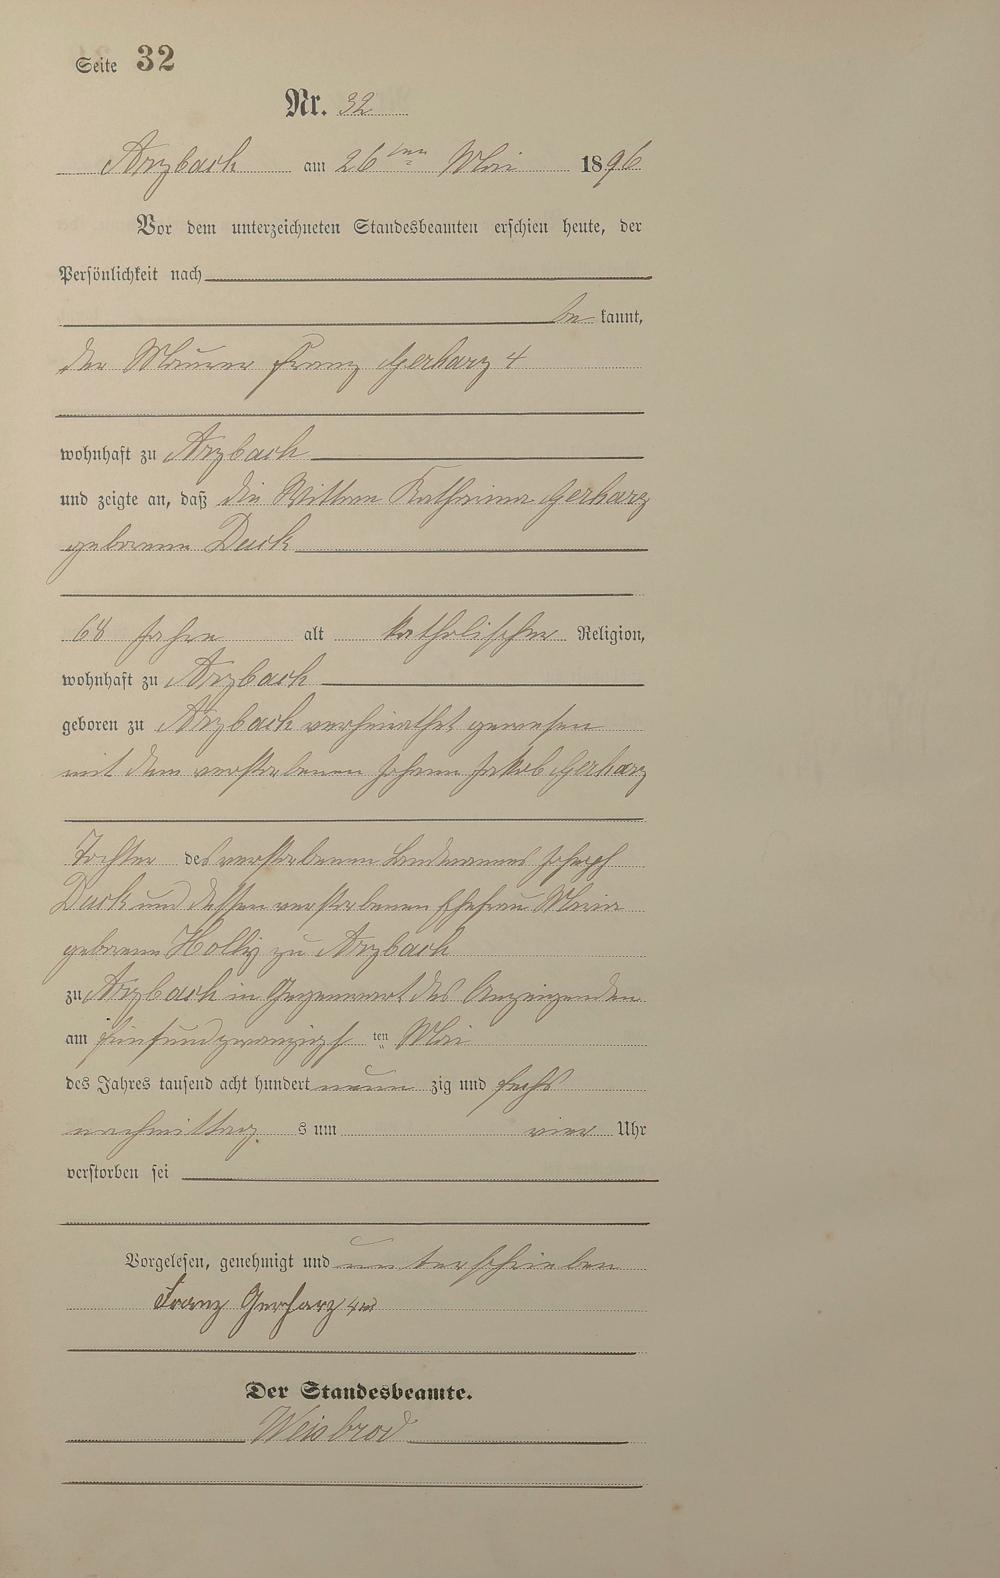 Seite 32
Nr. 32
Arzbach am 26ten Mai 1896
Vor dem unterzeichneten Standesbeamten erschien heute, der
Persönlichkeit nach
be kannt,
der Maurer Franz Gerharz 4
wohnhaft zu Arzbach
und zeigte an, daß die Wittwe Katharina Gerharz
geborene Duck
68 Jahre alt katholischer Religion,
wohnhaft zu Arzbach
geboren zu Arzbach verheirathet gewesen
mit dem verstorbenen Johann Jakob Gerharz
Tochter des verstorbenen Landmannes Joseph
Duck und dessen verstorbenen Ehefrau Maria
geborene Holly zu Arzbach
zu Arzbach in Gegenwart des Anzeigenden
am fünfundzwanzigsten Mai
des Jahres tausend acht hundert neun zig und sechs
nachmittag s um vier Uhr
verstorben sei
Vorgelesen, genehmigt und unterschrieben
Franz Gerharz 4ter
Der Standesbeamte.
Weisbrod